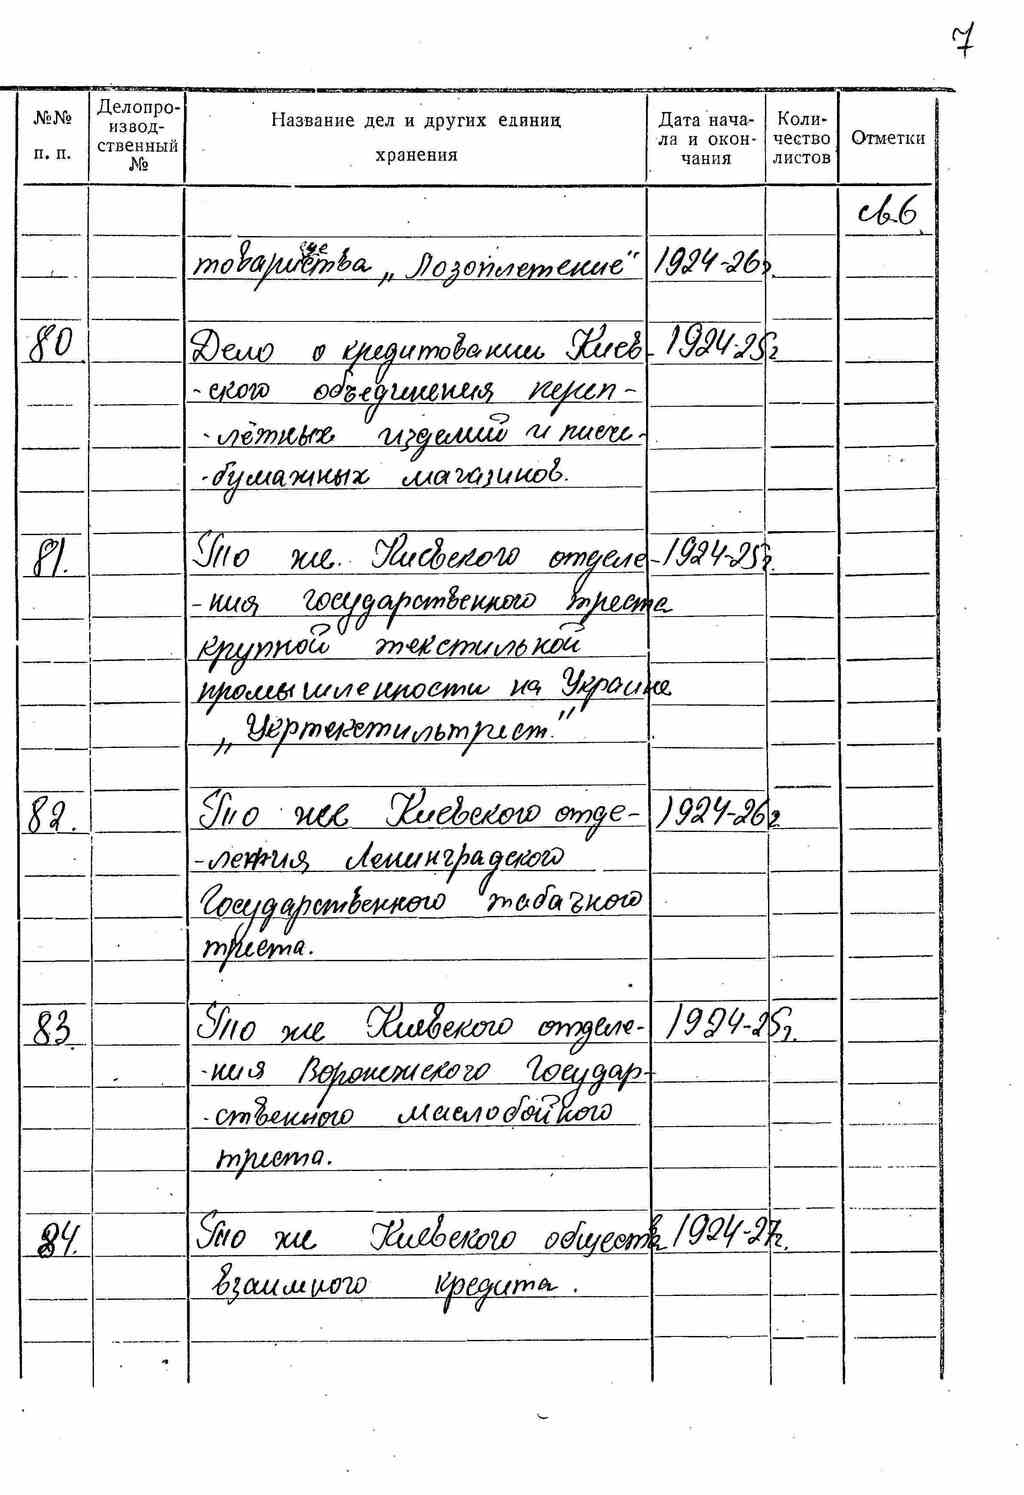 7
№№ п. п.
Делопро-
извод-
ственный
№
Название дел и других единиц
хранения
Дата нача-
ла и окон-
чания
Коли-
чество
листов
Отметки
св.6
товарищества „Лозоплетение" 1924-26г.
80 Дело о кредитовании Киев- 1924-25г
-ского объединения переп-
-лётных изделий и писче-
-бумажных магазинов.
81. То же Киевского отделе- 1924-25г.
-ния государственного треста
крупной текстильной
промышленности на Украине
„Укртекстильтрест."
82. То же Киевского отде- 1924-26г
-ления Ленинградского
Государственного табачного
треста.
83. То же Киевского отделе- 1924-25г.
-ния Воронежского Государ-
-ственного маслобойного
треста.
84. То же Киевского общества 1924-27г.
взаимного кредита.